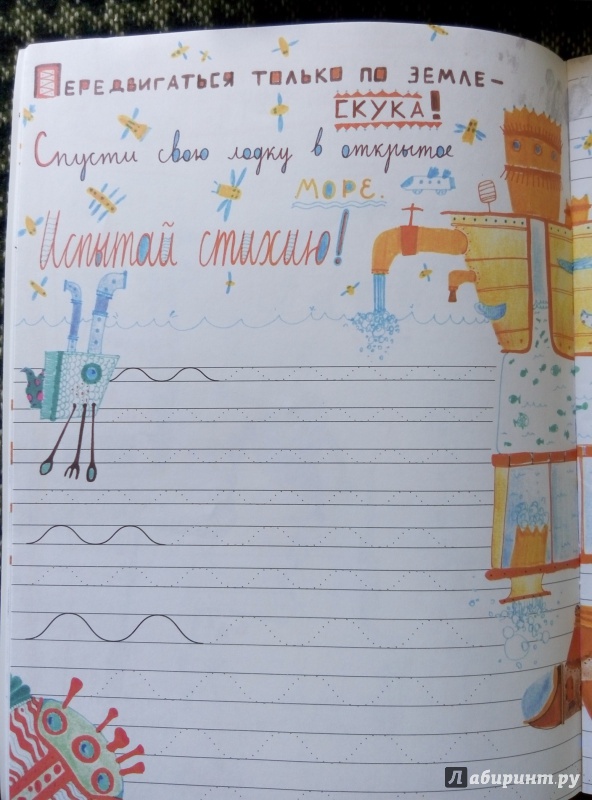 Передвигаться только по земле—
скука!
Спусти свою лодку в открытое
море.
Испытай стихию!
Лабиринт.ру